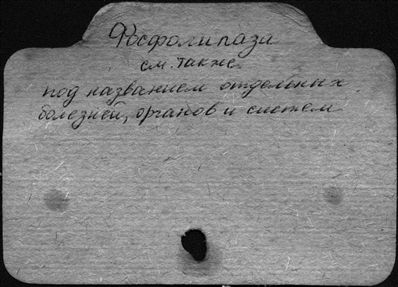 Фосфолипази
см. также
под названием отдельных
болезней, органов и систем